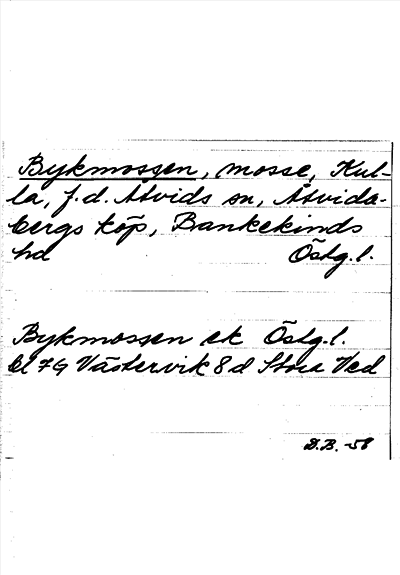 Bykmossen, mosse, Kul-
la, f.d. Åtvids sn, Åtvida-
bergs köp, Bankekinds
hd Östg.l.
Bykmossen ek Östg.l.
bl 7G Västervik 8d Stora Ved
D.B. -58